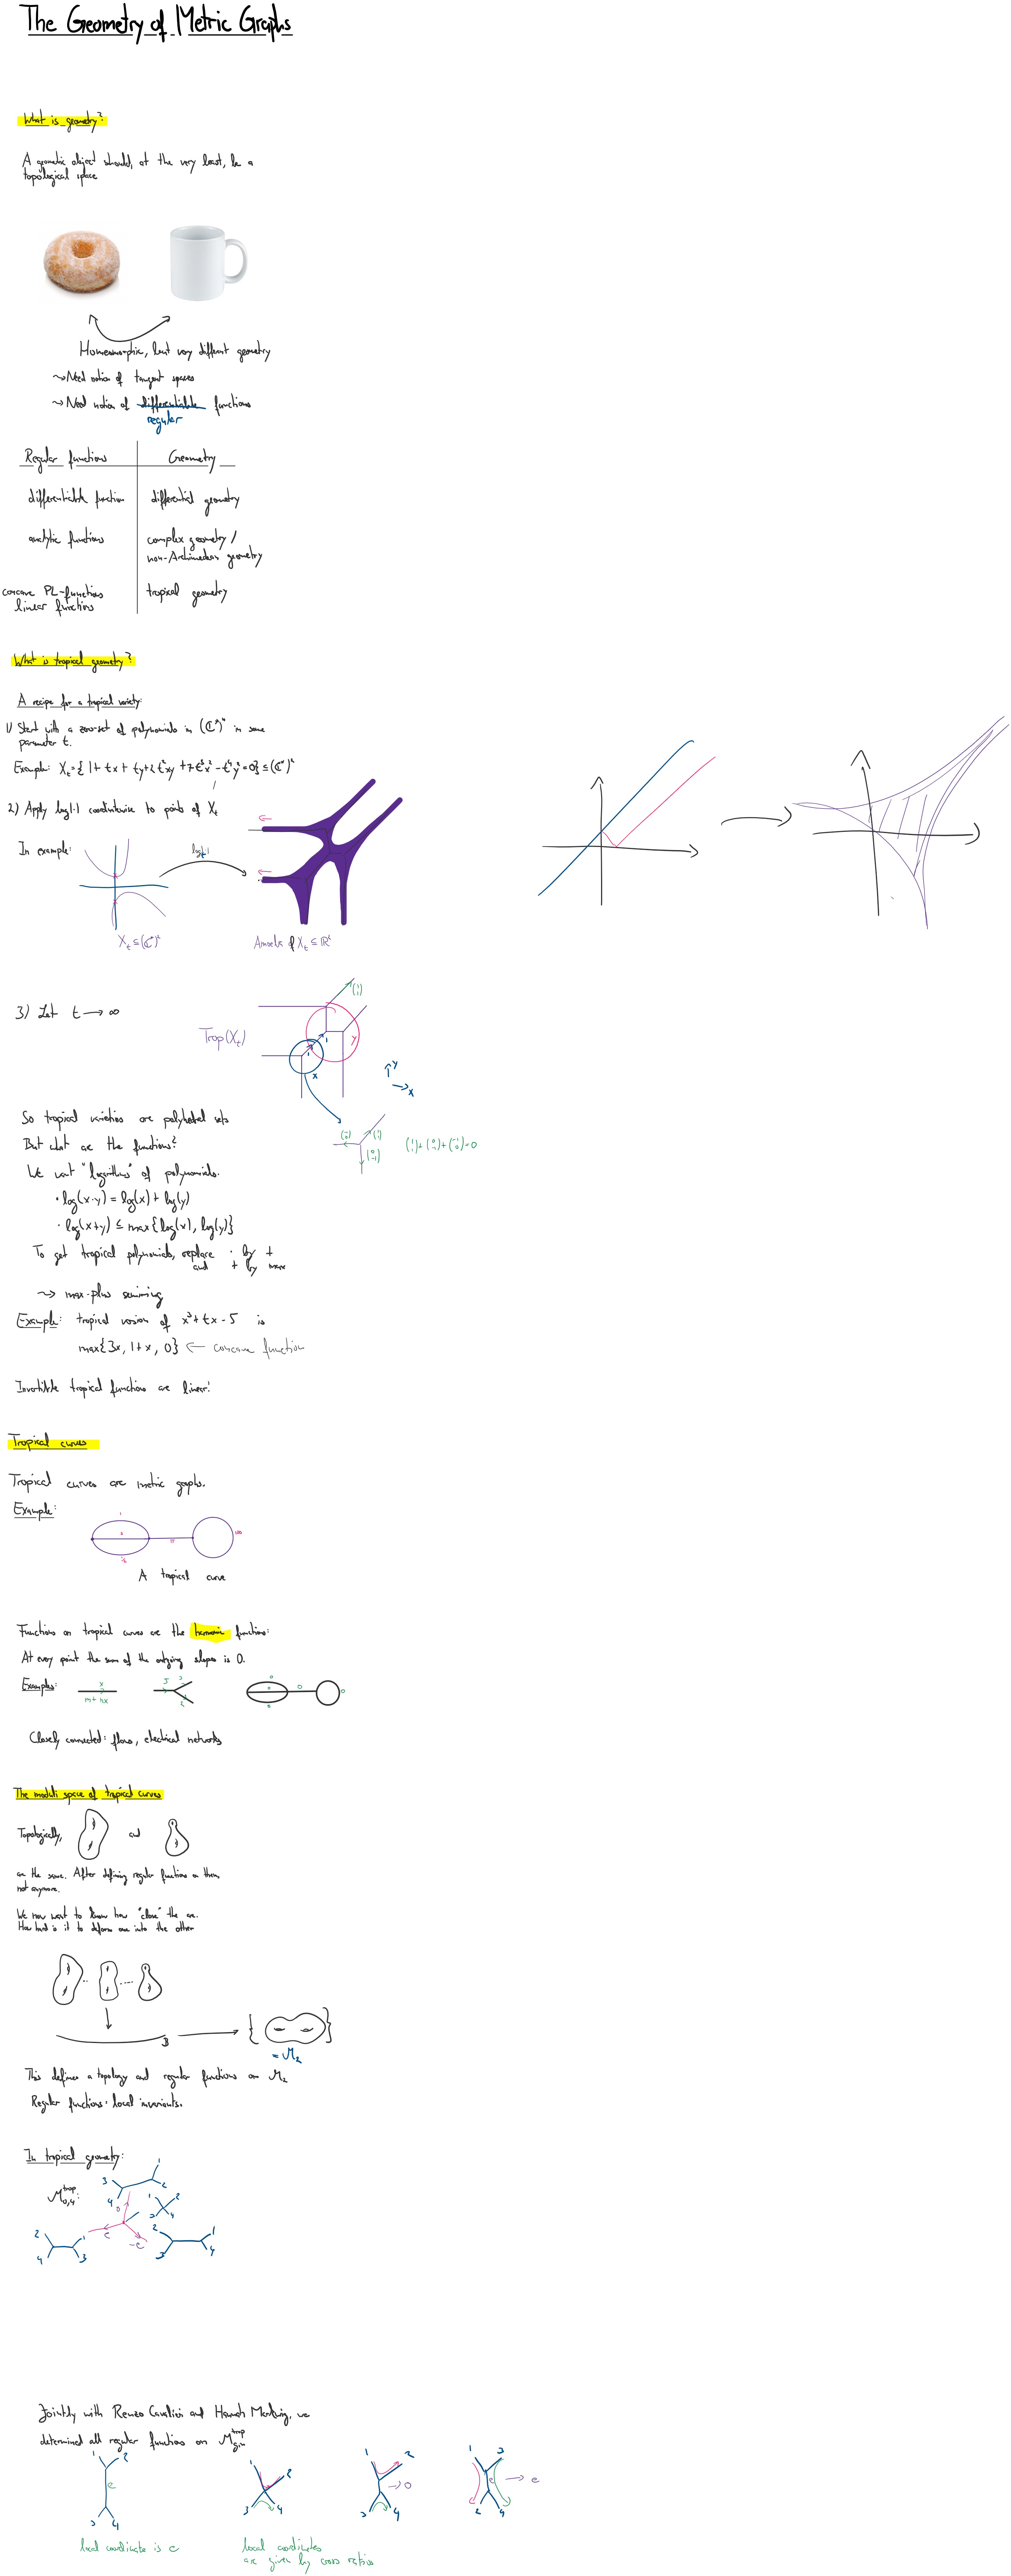 The Geometry of Metric Graphs
What is geometry?
A geometric object should, at the very least, be a
topological space
Homeomorphic, but very different geometry
~> Need notion of tangent spaces
~> Need notion of differentiable functions
regular
Regular functions | Geometry
differentiable function | differential geometry
analytic functions | complex geometry /
non-Archimedean geometry
concave PL-functions | tropical geometry
linear functions
What is tropical geometry?
A recipe for a tropical variety:
1) Start with a zero-set of polynomials in (ℂ*)ⁿ in some
parameter t.
Example: X_t = { 1 + tx + ty + 2t²xy + 7t³x² - t⁴y² = 0 } ⊆ (ℂ*)²
2) Apply log|·| coordinatewise to points of X_t
In example:
X_t ⊆ (ℂ*)²
Amoeba of X_t ⊆ ℝ²
3) Let t → ∞
Trop(X_t)
x
y
y
x
So tropical varieties are polyhedral sets
But what are the functions?
We want "logarithms" of polynomials.
• log(x·y) = log(x) + log(y)
• log(x+y) ≤ max{log(x), log(y)}
To get tropical polynomials, replace · by +
and + by max
~> max-plus semiring
Example: tropical version of x³ + tx - 5 is
max{3x, 1+x, 0} ← concave function
Invertible tropical functions are linear!
Tropical curves
Tropical curves are metric graphs.
Example:
A tropical curve
Functions on tropical curves are the harmonic functions:
At every point the sum of the outgoing slopes is 0.
Examples:
x
m + nx
Closely connected: flows, electrical networks
The moduli space of tropical curves
Topologically, and
are the same. After defining regular functions on them,
not anymore.
We now want to know how "close" the are.
How hard is it to deform one into the other
B
= M₂
This defines a topology and regular functions on M₂
Regular functions: local invariants.
In tropical geometry:
M₀,₄^trop:
Jointly with Renzo Cavalieri and Hannah Markwig, we
determined all regular functions on M_g,n^trop
local coordinate is e
local coordinates
are given by cross ratios